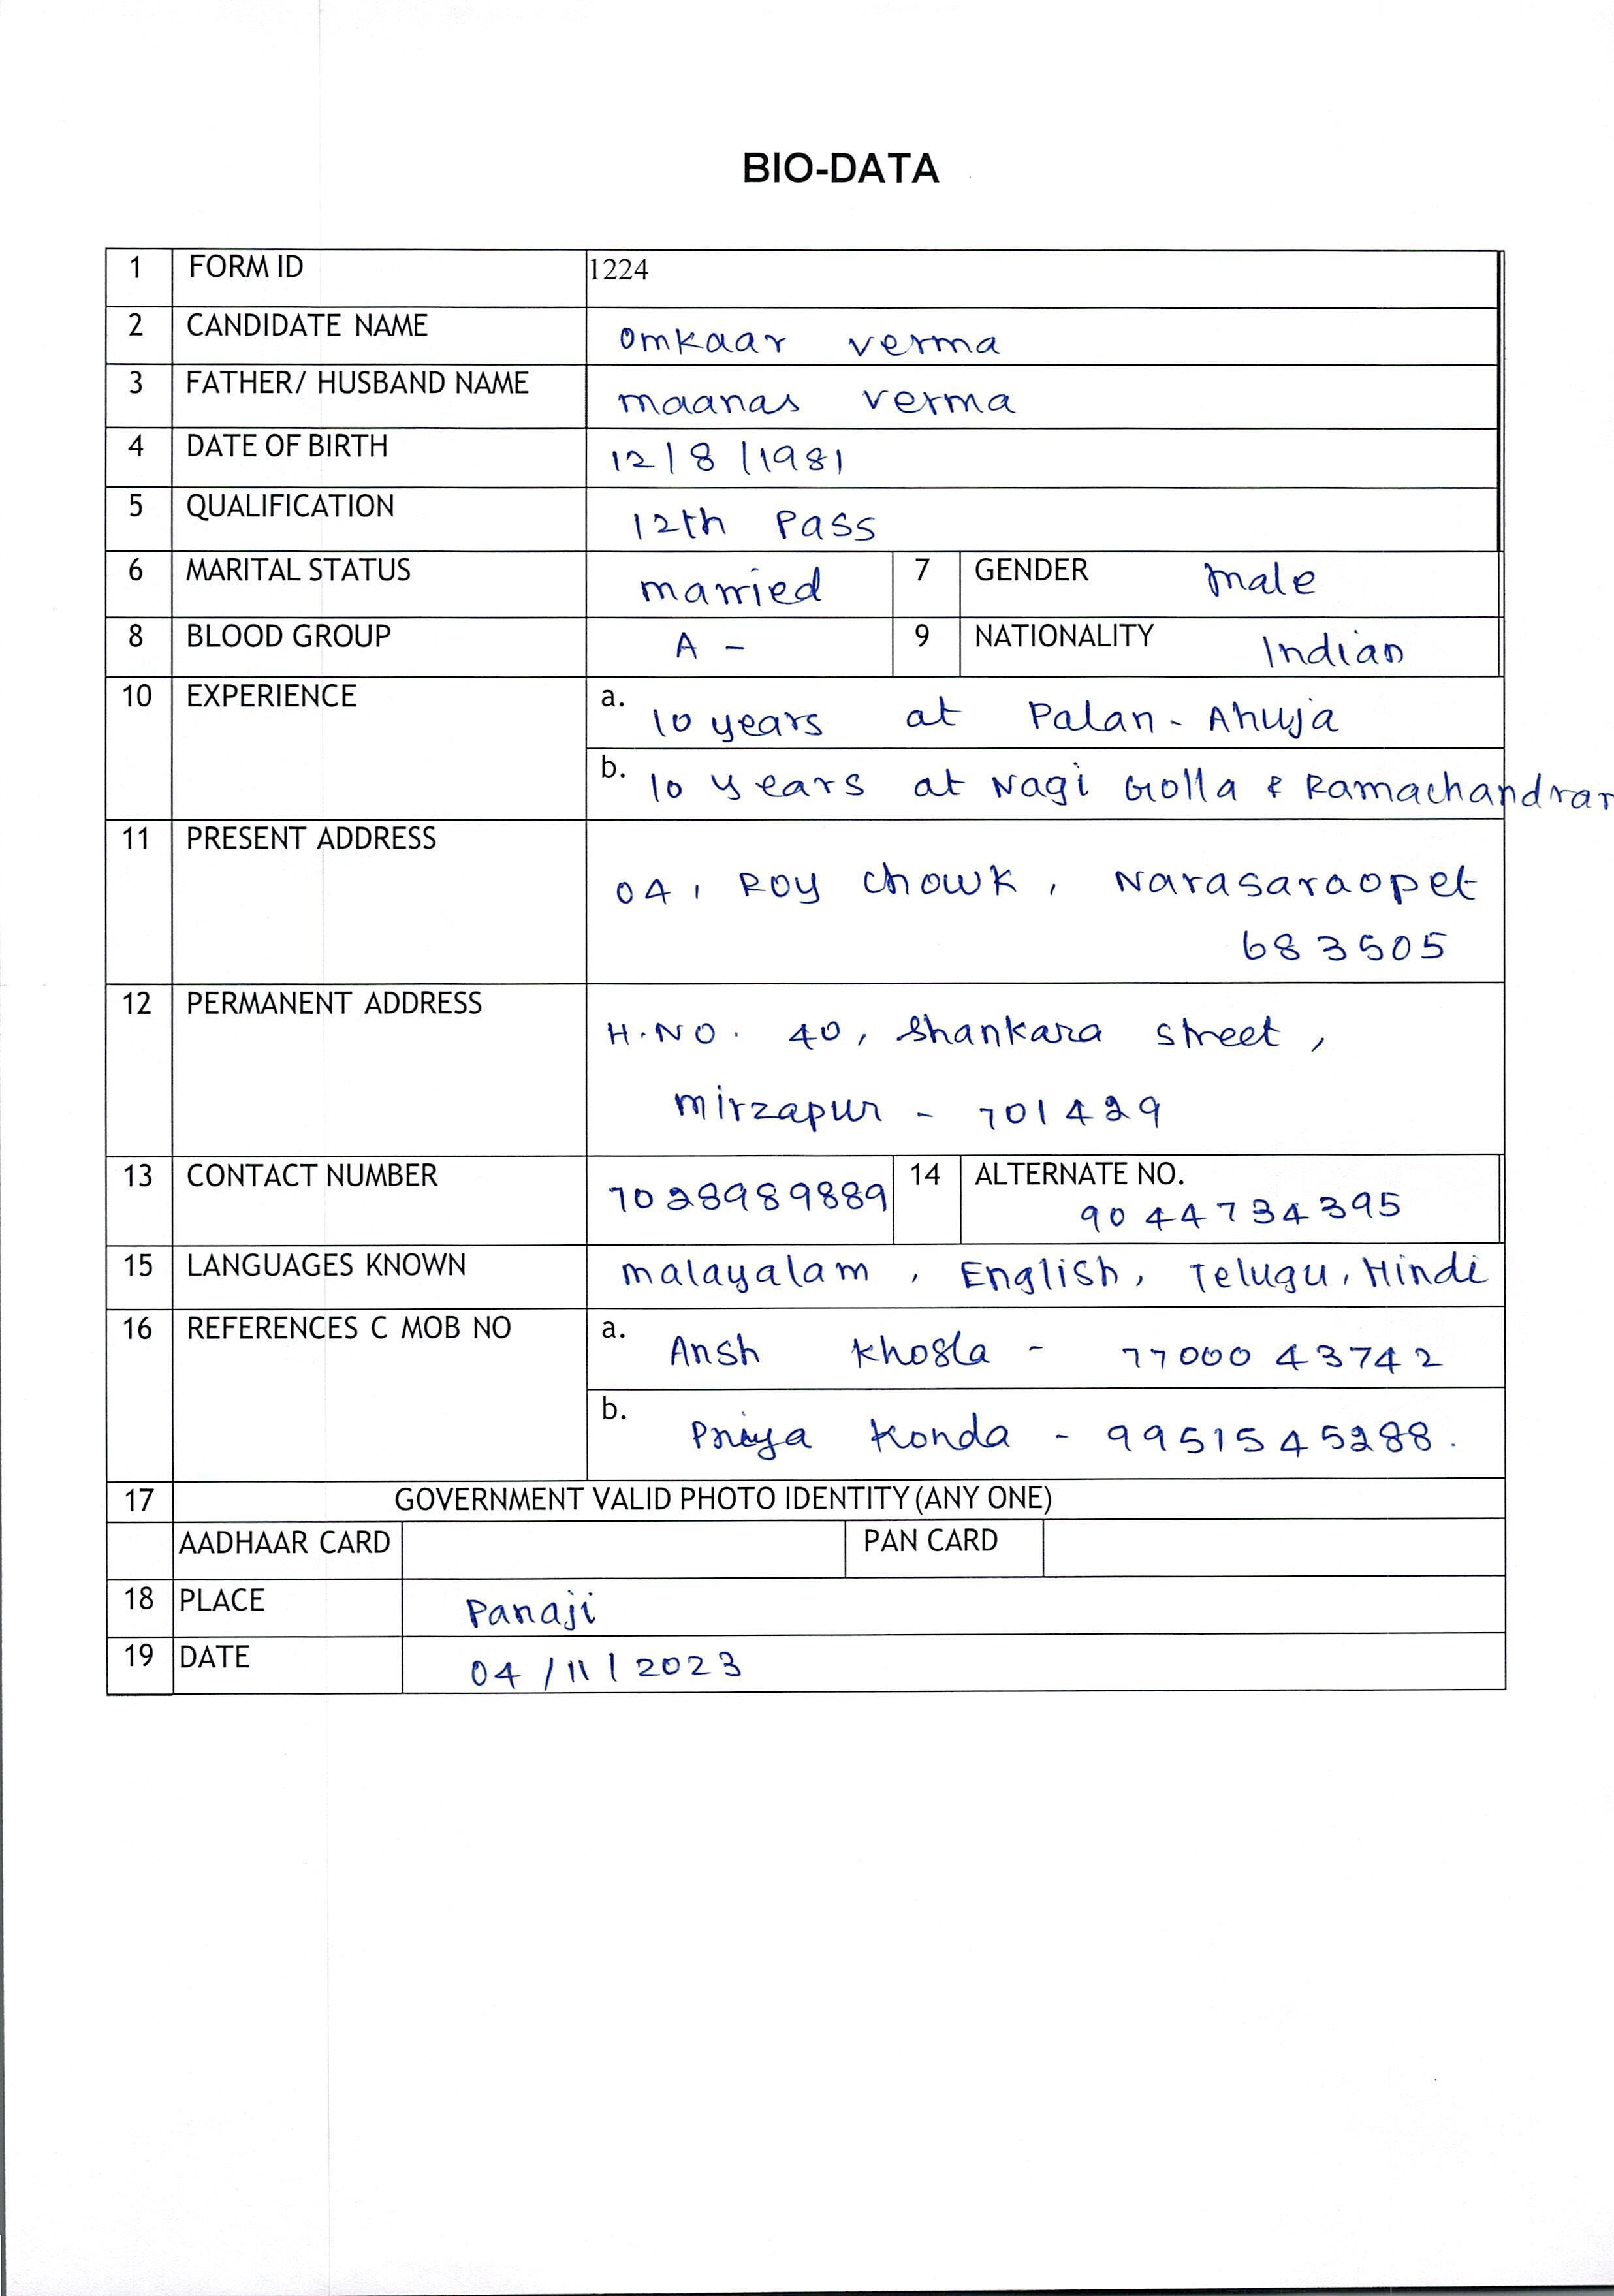 BIO-DATA
1 FORM ID 1224
2 CANDIDATE NAME Omkaar verma
3 FATHER/ HUSBAND NAME maanas verma
4 DATE OF BIRTH 12/8/1981
5 QUALIFICATION 12th Pass
6 MARITAL STATUS married 7 GENDER male
8 BLOOD GROUP A - 9 NATIONALITY Indian
10 EXPERIENCE a. 10 years at Palan - Ahuja
b. 10 years at Nagi Golla & Ramachandran
11 PRESENT ADDRESS
04, Roy chowk, Narasaraopet
683505
12 PERMANENT ADDRESS
H.NO. 40, Shankara Street,
mirzapur - 701429
13 CONTACT NUMBER 7028989889 14 ALTERNATE NO.
9044734395
15 LANGUAGES KNOWN malayalam, English, Telugu, Hindi
16 REFERENCES C MOB NO a. Ansh Khosla - 7700043742
b. Priya Konda - 9951545288.
17 GOVERNMENT VALID PHOTO IDENTITY (ANY ONE)
AADHAAR CARD PAN CARD
18 PLACE Panaji
19 DATE 04/11/2023